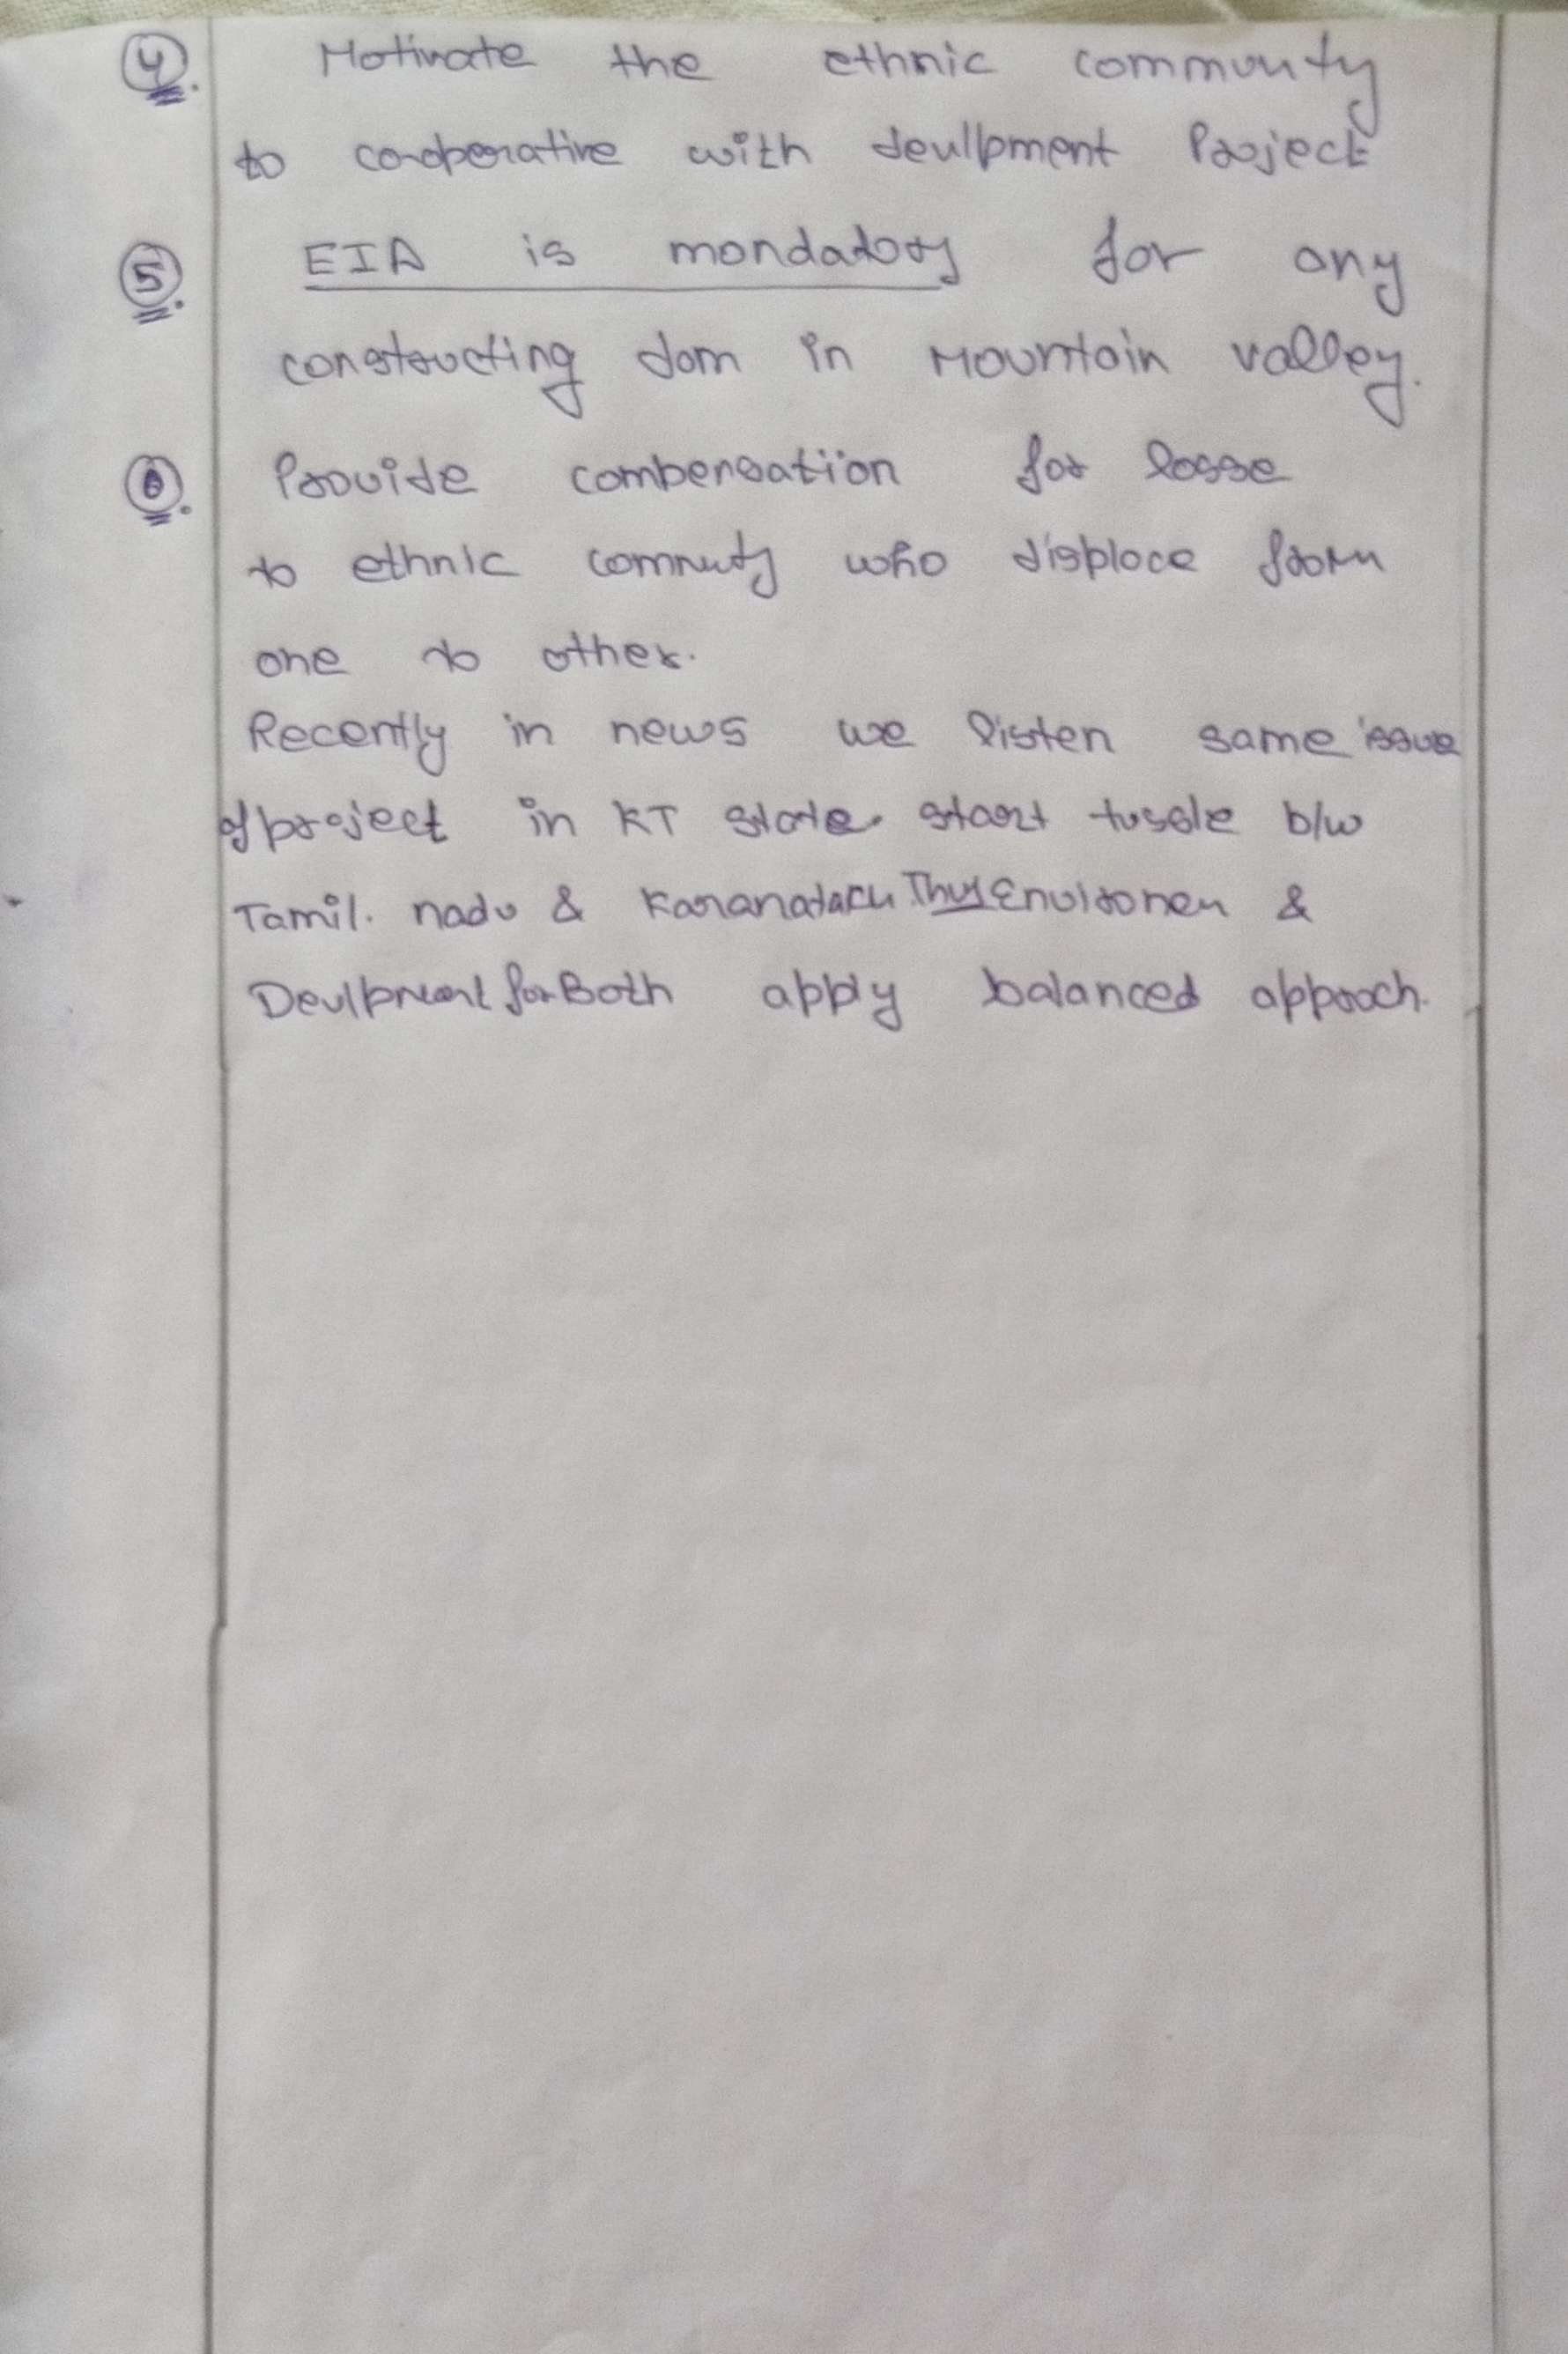 4. Motivate the ethnic communty
to co-operative with deullpment Project
5. EIA is mondatory for any
constructing dam in Mountain valley.
6. Provide compensation for losse
to ethnic comnuty who displace from
one to other.
Recently in news we listen same issue
of project in KT state. start tussle b/w
Tamil. nadu & Thus &
for Both apply balanced approch.